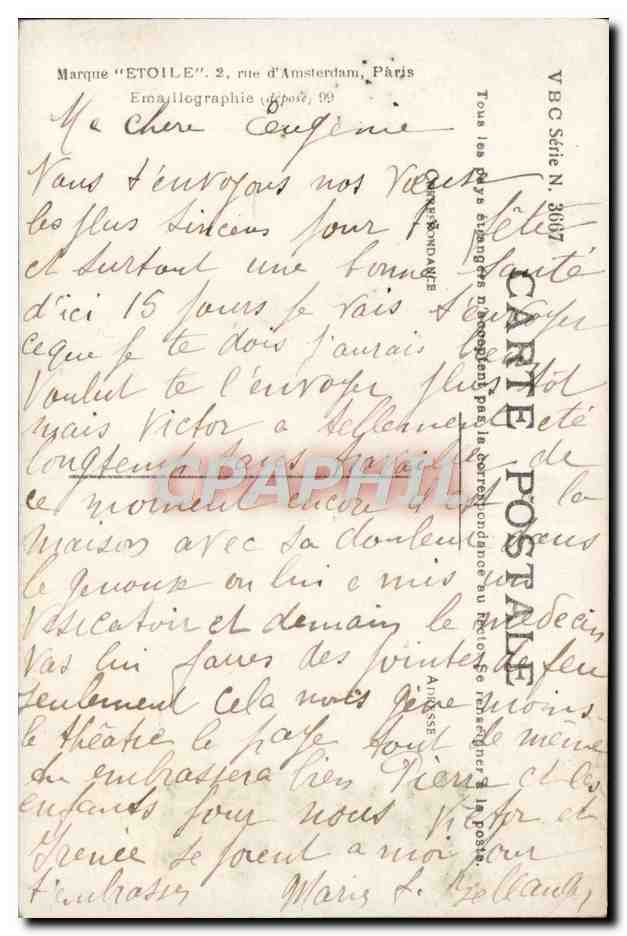 Marque "ETOILE". 2, rue d'Amsterdam, Paris
Emaillographie (déposé) 99
VBC Série N. 3667
CARTE POSTALE
Tous les pays étrangers n'acceptent pas la correspondance au recto. (Se renseigner à la poste.
CORRESPONDANCE
ADRESSE
Ma chere Eugénie
Nous t'envoyons nos Vœux
les plus sinceres pour ta fête
et surtout une bonne santé
d'ici 15 jours je vais t'envoyer
ceque je te dois j'aurais bien
Voulut te l'envoyer plus tôt
mais Victor a tellement été
longtemp sans travailler de
ce moment encore il est a la
maison avec sa douleur dans
le genoux on lui a mis un
Vesicatoir et demain le medecin
vas lui faires des pointes de feu
seulement cela nous gêne moins
le théâtre le paye tout de même
tu embrassera bien Pierre et les
enfants pour nous Victor et
Irenée se joient a moi pour
t'embrasser Marie L.
CPAPHIL